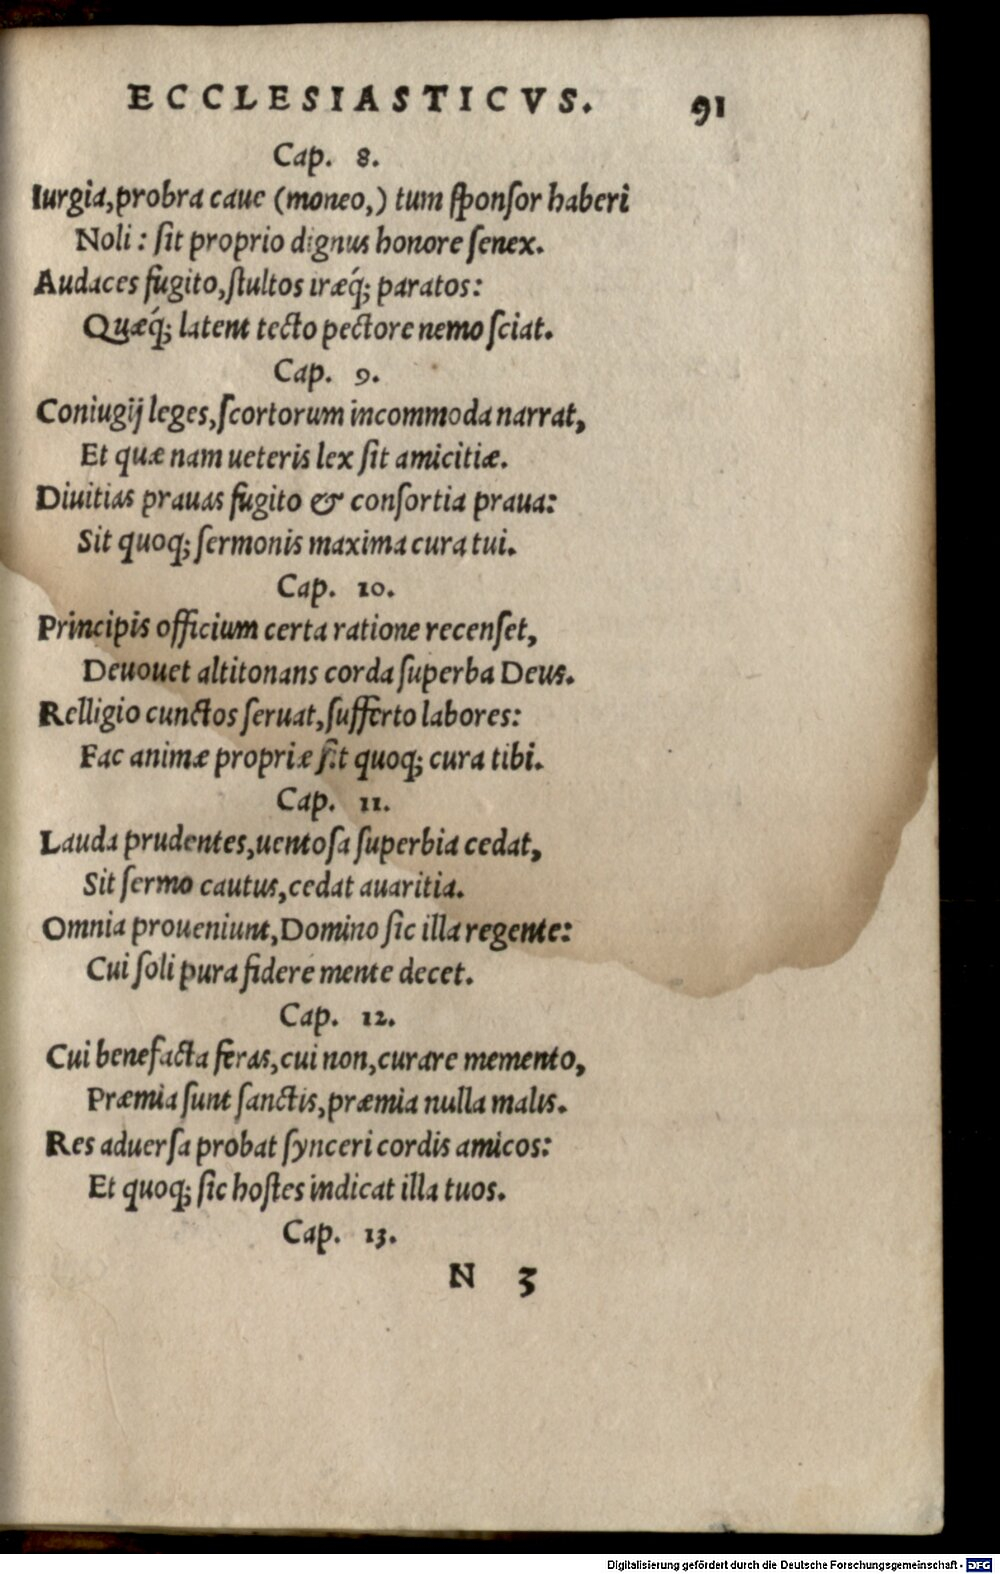 ECCLESIASTICVS. 91
Cap. 8.
Iurgia, probra caue (moneo,) tum ſponſor haberi
Noli: ſit proprio dignus honore ſenex.
Audaces fugito, ſtultos iræq́; paratos:
Quæq́; latent tecto pectore nemo ſciat.
Cap. 9.
Coniugij leges, ſcortorum incommoda narrat,
Et quæ nam ueteris lex ſit amicitiæ.
Diuitias prauas fugito & conſortia praua:
Sit quoq; ſermonis maxima cura tui.
Cap. 10.
Principis officium certa ratione recenſet,
Deuouet altitonans corda ſuperba Deus.
Relligio cunctos ſeruat, ſufferto labores:
Fac animæ propriæ ſit quoq; cura tibi.
Cap. 11.
Lauda prudentes, uentoſa ſuperbia cedat,
Sit ſermo cautus, cedat auaritia.
Omnia proueniunt, Domino ſic illa regente:
Cui ſoli pura fidere mente decet.
Cap. 12.
Cui benefacta feras, cui non, curare memento,
Præmia ſunt ſanctis, præmia nulla malis.
Res aduerſa probat ſynceri cordis amicos:
Et quoq; ſic hoſtes indicat illa tuos.
Cap. 13.
N 3
Digitalisierung gefördert durch die Deutsche Forschungsgemeinschaft - DFG